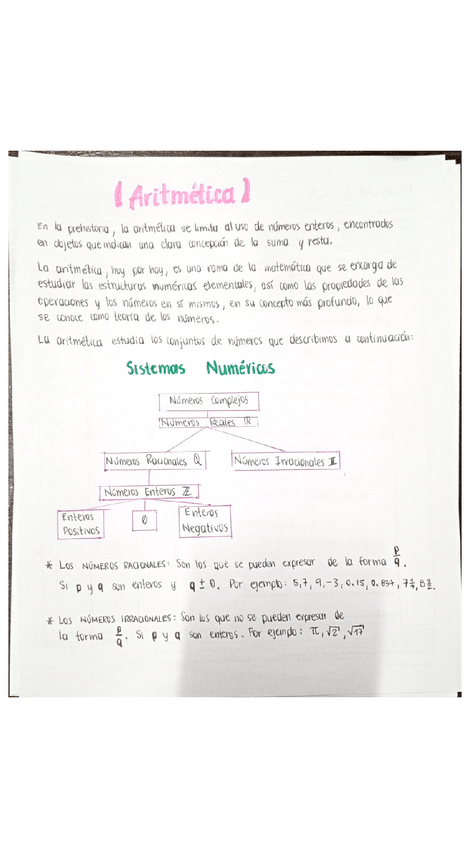 [Aritmética]
En la prehistoria, la aritmética se limita al uso de números enteros, encontrados
en objetos que indican una clara concepción de la suma y resta.
La aritmética, hoy por hoy, es una rama de la matemática que se encarga de
estudiar las estructuras numéricas elementales, así como las propiedades de las
operaciones y los números en sí mismos, en su concepto más profundo, lo que
se conoce como teoría de los números.
La aritmética estudia los conjuntos de números que describimos a continuación:
Sistemas Numéricos
Números Complejos
Números Reales ℝ
Números Racionales ℚ
Números Irracionales 𝕀
Números Enteros ℤ
Enteros Positivos
0
Enteros Negativos
* LOS NÚMEROS RACIONALES: Son los que se pueden expresar de la forma p/q.
Si p y q son enteros y q ± 0. Por ejemplo: 5, 7, 9, -3, 0.15, 0.834,
* LOS NÚMEROS IRRACIONALES: Son los que no se pueden expresar de
la forma p/q. Si p y q son enteros. Por ejemplo: π, √2, √17